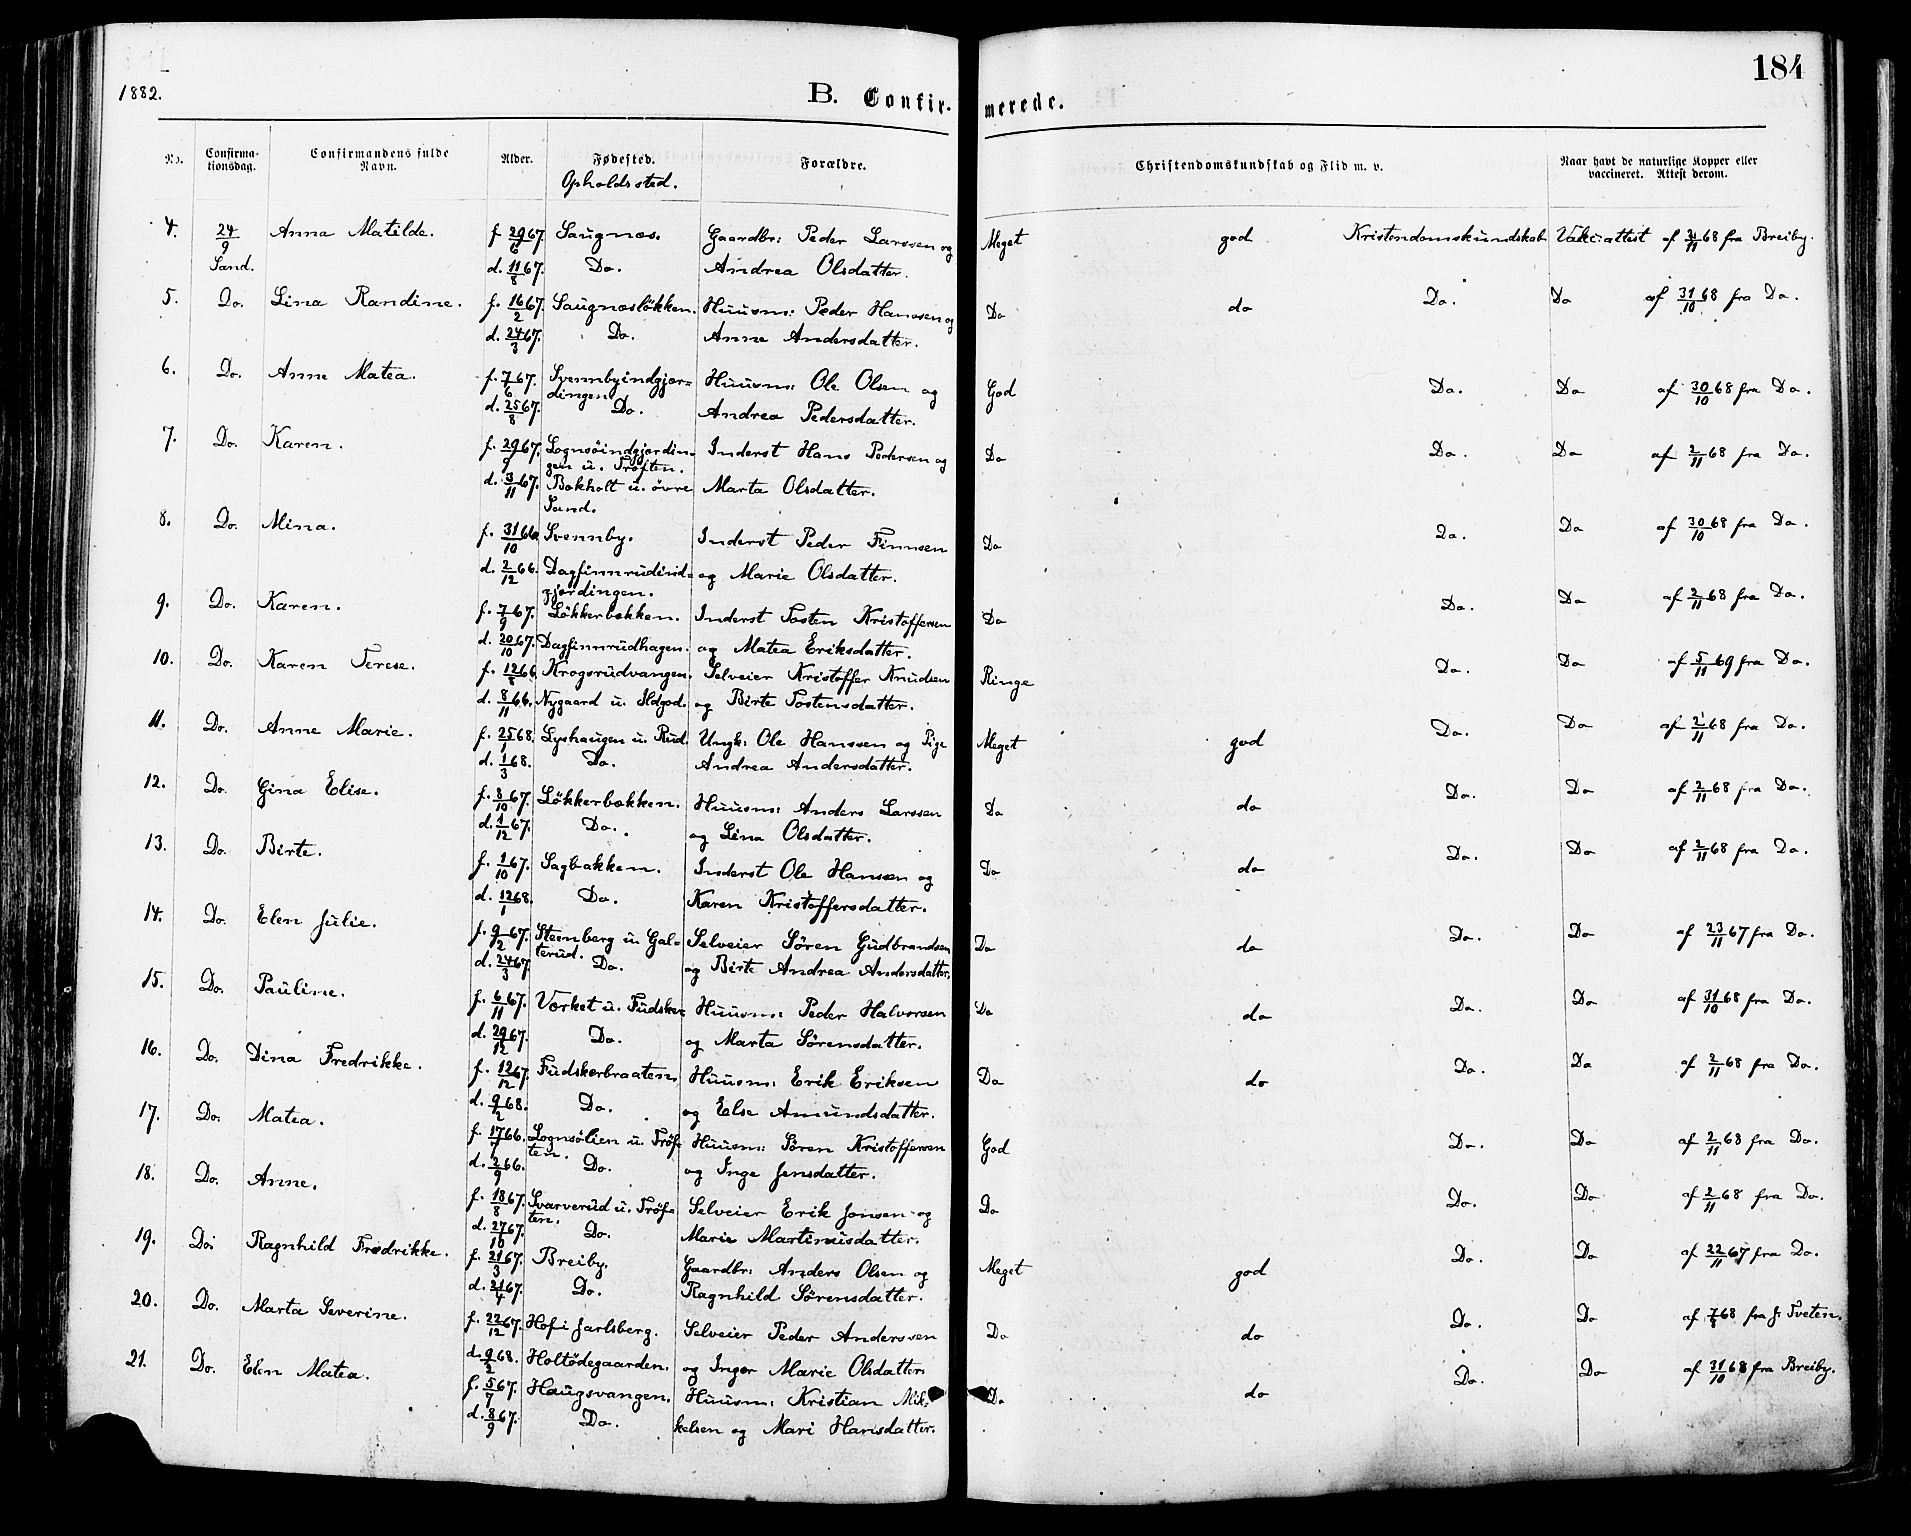 1882.
B. Confirmerede.
184
No. Confirmationsdag. Confirmandens fulde Navn. Alder. Fødested. Opholdssted. Forældre. Christendomskundskab og Flid m. v. Naar havt de naturlige Kopper eller vaccineret. Attest derom.
4. 24/9 Anna Matilde. f 29/6 67. Saugnæs. Gaardbr: Peder Larssen og Meget god Kristendomskundskab Vakc:attest af 2/11 68 fra Breiby.
Sand. d. 11/8 67. Do. Andrea Olsdatter.
5. Do. Lina Randine. f. 16/2 67. Saugnæsløkken. Huusm: Peder Hanssen og Do do Do. Do af 31/10 68 fra Do.
d. 24/3 67. Do. Anne Andersdatter.
6. Do. Anne Matea. f. 7/6 67. Svennbyindgjær= Huusm: Ole Olsen og God Do. Do af 30/10 68 fra Do.
dingen
d. 25/8 67. Do. Andrea Pedersdatter.
7. Do. Karen. f. 29/9 67. Lognsøindgjærdin= Inderst Hans Pedersen og Do Do. Do af 2/11 68 fra Do.
gen u. Trøften.
d. 3/11 67. Bækholt u. øvre Marta Olsdatter.
Sand.
8. Do. Mina. f. 31/10 66. Svennby. Inderst Peder Finnsen Do Do. Do af 30/10 68 fra Do.
d. 2/12 66. Dagfinnrudind= og Marie Olsdatter.
gjærdingen.
9. Do. Karen. f. 7/9 67. Løkkerbækken. Inderst Tosten Kristoffersen Do Do. Do af 2/11 68 fra Do.
d. 20/10 67. Dagfinnrudhagen. og Matea Eriksdatter.
10. Do. Karen Terese. f. 12/8 66. Krogsrudvangen. Selveier Kristoffer Knudsen Ringe Do. Do af 5/11 69 fra Do.
d. 8/11 66. Nygaard u. Ildgod. og Birte Tostensdatter.
11. Do. Anne Marie. f. 25/1 68. Lyshaugen u. Rud. Ungk: Ole Hanssen og Pige Meget god Do. Do af 2/11 68 fra Do.
d. 1/3 68. Do. Andrea Andersdatter.
12. Do. Gina Elise. f. 8/10 67. Løkkerbækken. Huusm: Anders Larssen Do do Do. Do af 2/11 68 fra Do.
d. 1/12 67. Do. og Lina Olsdatter.
13. Do. Birte. f. 1/10 67. Sagbakken. Inderst Ole Hansen og Do do Do. Do af 2/11 68 fra Do.
d. 12/1 68. Do. Karen Kristoffersdatter.
14. Do. Elen Julie. f. 9/2 67. Steenberg u. Gal= Selveier Søren Gudbrandsen Do do Do. Do af 23/11 67 fra Do.
terud.
d. 24/3 67. Do. og Birte Andrea Andersdatter.
15. Do. Pauline. f. 6/11 67. Værket u. Fudsker Huusm: Peder Halvorsen Do do Do. Do af 31/10 68 fra Do.
d. 29/12 67. Do. og Marta Sørensdatter.
16. Do. Dina Fredrikke. f. 12/12 67. Fudskerbraaten. Huusm: Erik Eriksen Do do Do. Do af 2/11 68 fra Do.
d. 9/2 68. Do. og Else Amundsdatter.
17. Do. Matea. f. 17/7 66. Lognsølien u. Trøf= Huusm: Søren Kristoffersen God Do. Do af 2/11 68 fra Do.
ten.
d. 2/9 66. Do. og Inge Jensdatter.
18. Do. Anne. f. 18/8 67. Svarverud u. Trøf= Selveier Erik Jonsen og Do Do. Do af 2/11 68 fra Do.
ten.
d. 27/10 67. Do. Marie Martinusdatter.
19. Do. Ragnhild Fredrikke. f. 21/3 67. Breiby. Gaardbr: Anders Olsen og Meget god Do. Do af 22/11 67 fra Do.
d. 21/4 67. Do. Ragnhild Sørensdatter.
20. Do. Marta Severine. f. 22/12 67. Hof i Jarlsberg. Selveier Peder Anderssen Do do Do. Do af 7/8 68 fra J. Tveten.
d. 9/2 68. Holtødegaarden. og Inger Marie Olsdatter.
21. Do. Elen Matea. f. 5/7 67. Haugsvangen. Huusm: Kristian Mik= Do do Do. Do af 31/10 68 fra Breiby.
d. 8/9 67. Do. kelsen og Mari Hansdatter.